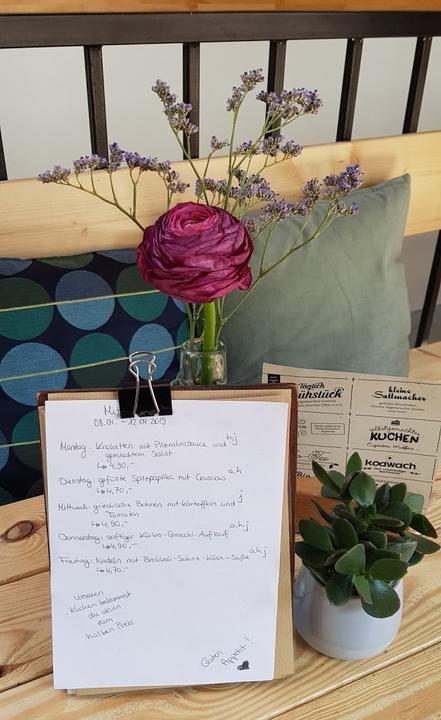 08.04. - 12.04.2019
Montag: Kroketten mit Pilzrahmsauce und h,j
gemischtem Salat
↳ 4,90,-
Dienstag: gefüllte Spitzpaprika mit Couscous a,h
↳ 4,70,-
Mittwoch: griechische Bohnen mit Kartoffeln und j
Tomaten
↳ 4,90,-
Donnerstag: saftiger Kürbis-Gnocchi-Auflauf a,h,j
↳ 4,90,-
Freitag: Nudeln mit Brokkoli-Sahne-Käse-Soße a,h,j
↳ 4,70,-
unseren
Kuchen bekommst
du dann
zum
halben Preis
Guten
Appetit!
Täglich
kleine
Sattmacher
selbstgemachter
KUCHEN
koawach